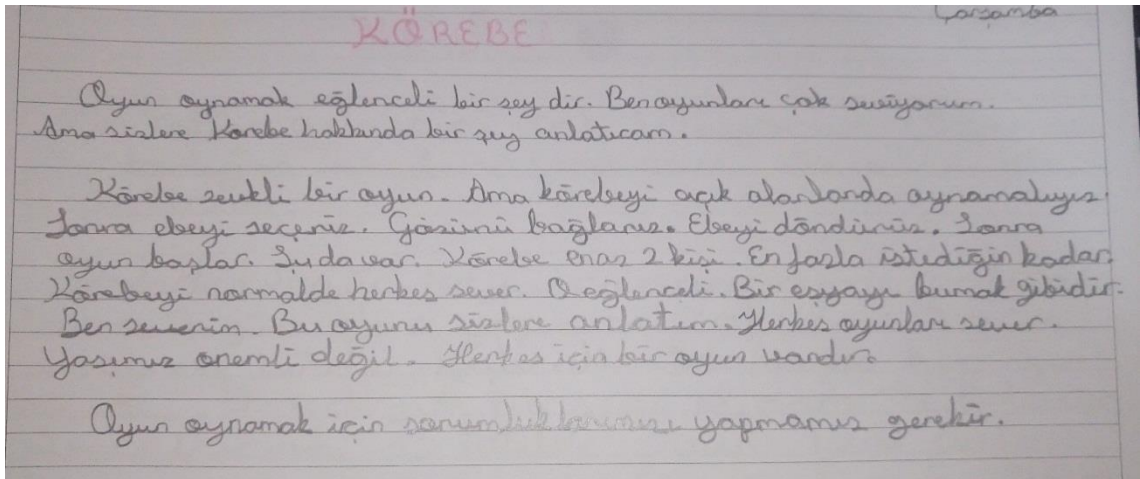 Çarşamba
KÖREBE
Oyun oynamak eğlenceli bir şey dir. Ben oyunları çok seviyorum.
Ama sizlere Körebe hakkında bir şey anlatıcam.
Körebe zevkli bir oyun. Ama körebeyi açık alanlarda oynamalıyız
Sonra ebeyi seçeriz. Gözünü bağlarız. Ebeyi döndürürüz. Sonra
oyun başlar. Şu da var. Körebe en az 2 kişi. En fazla istediğin kadar.
Körebeyi normalde herkes sever. O eğlenceli. Bir eşyayı bumak gibidir.
Ben severim. Bu oyunu sizlere anlatım. Herkes oyunları sever.
Yaşımız önemli değil. Herkes için bir oyun vardır.
Oyun oynamak için sorumluklarımızı yapmamız gerekir.